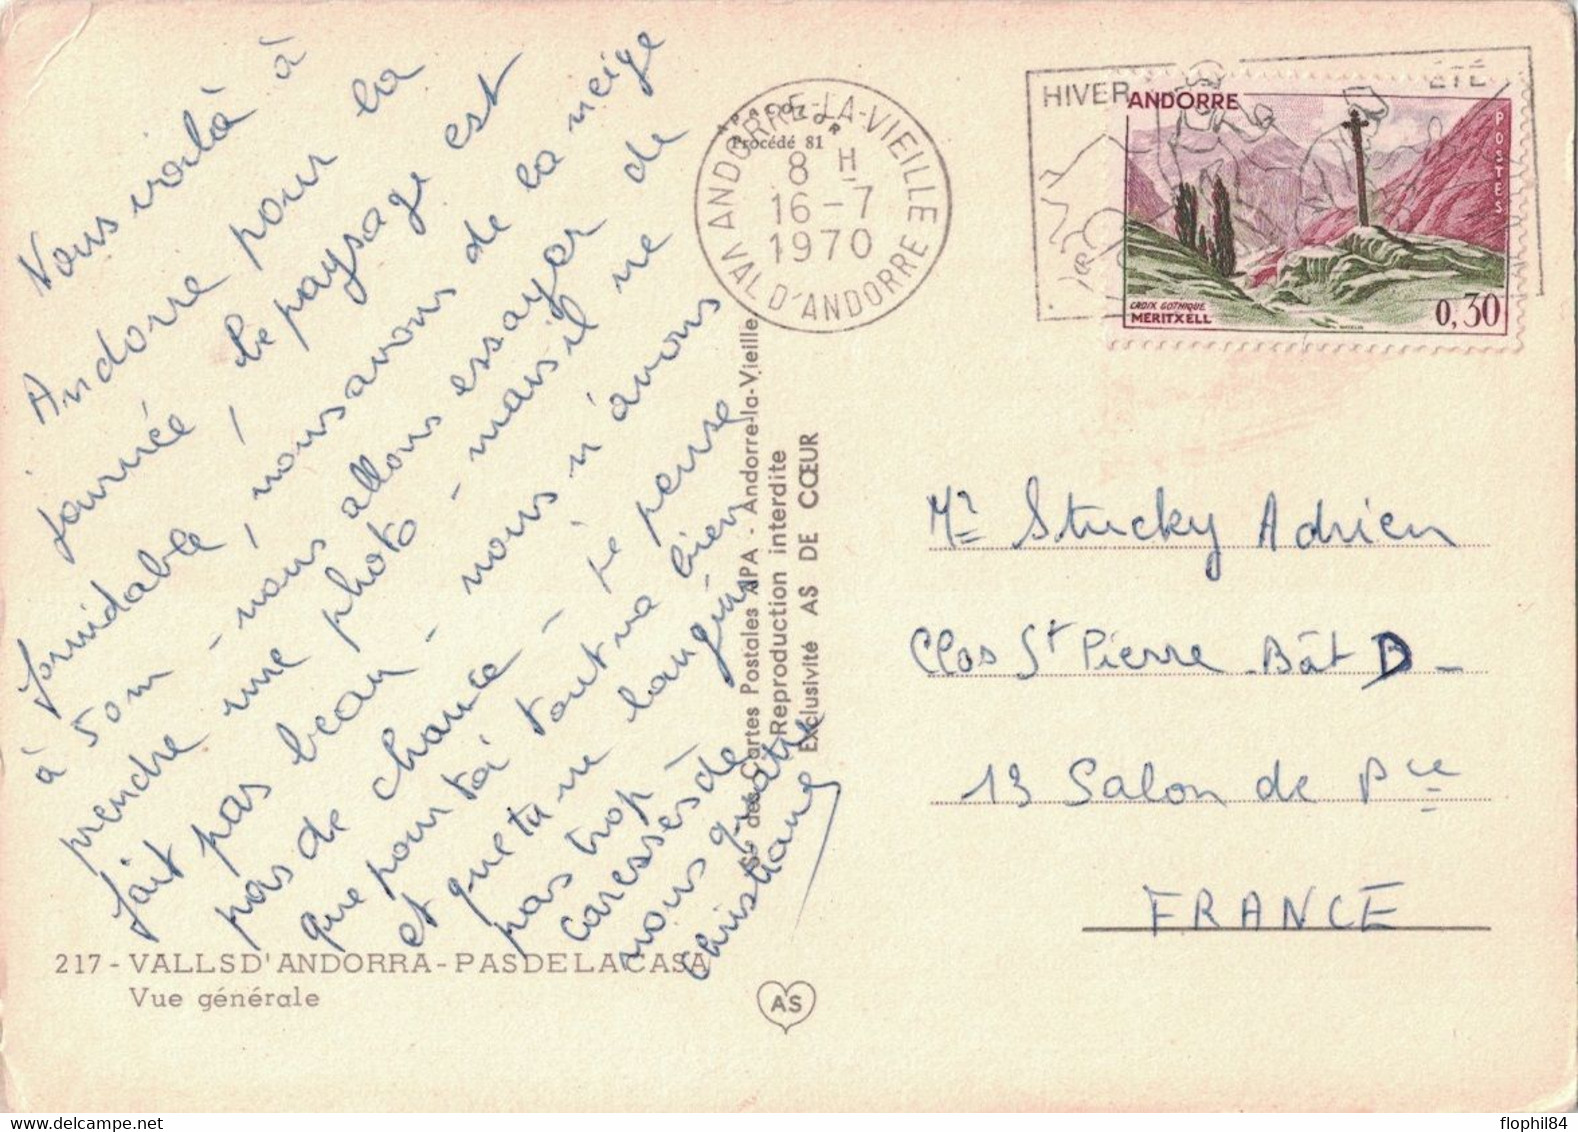 Nous voilà à
Andorre pour la
journée. Le paysage est
formidable, nous avons de la neige
à 50m - nous allons essayer de
prendre une photo - mais il ne
fait pas beau - nous n'avons
pas de chance - je pense
que pour toi tout va bien
et que tu ne languis
pas trop
caresses de
nous quatre
Christiane
217 - VALLS D'ANDORRA - PAS DE LA CASA
Vue générale
APACOLOR
Procédé 81
ANDORRE-LA-VIEILLE
8 H
16-7
1970
VAL D'ANDORRE
HIVER
ÉTÉ
ANDORRE
POSTES
CROIX GOTHIQUE
MERITXELL
0,30
Sté des Cartes Postales APA - Andorre-la-Vieille
Reproduction interdite
Exclusivité AS DE CŒUR
AS
Mr Stucky Adrien
Clos St Pierre - Bât D -
13 Salon de Pce
FRANCE
flophil84